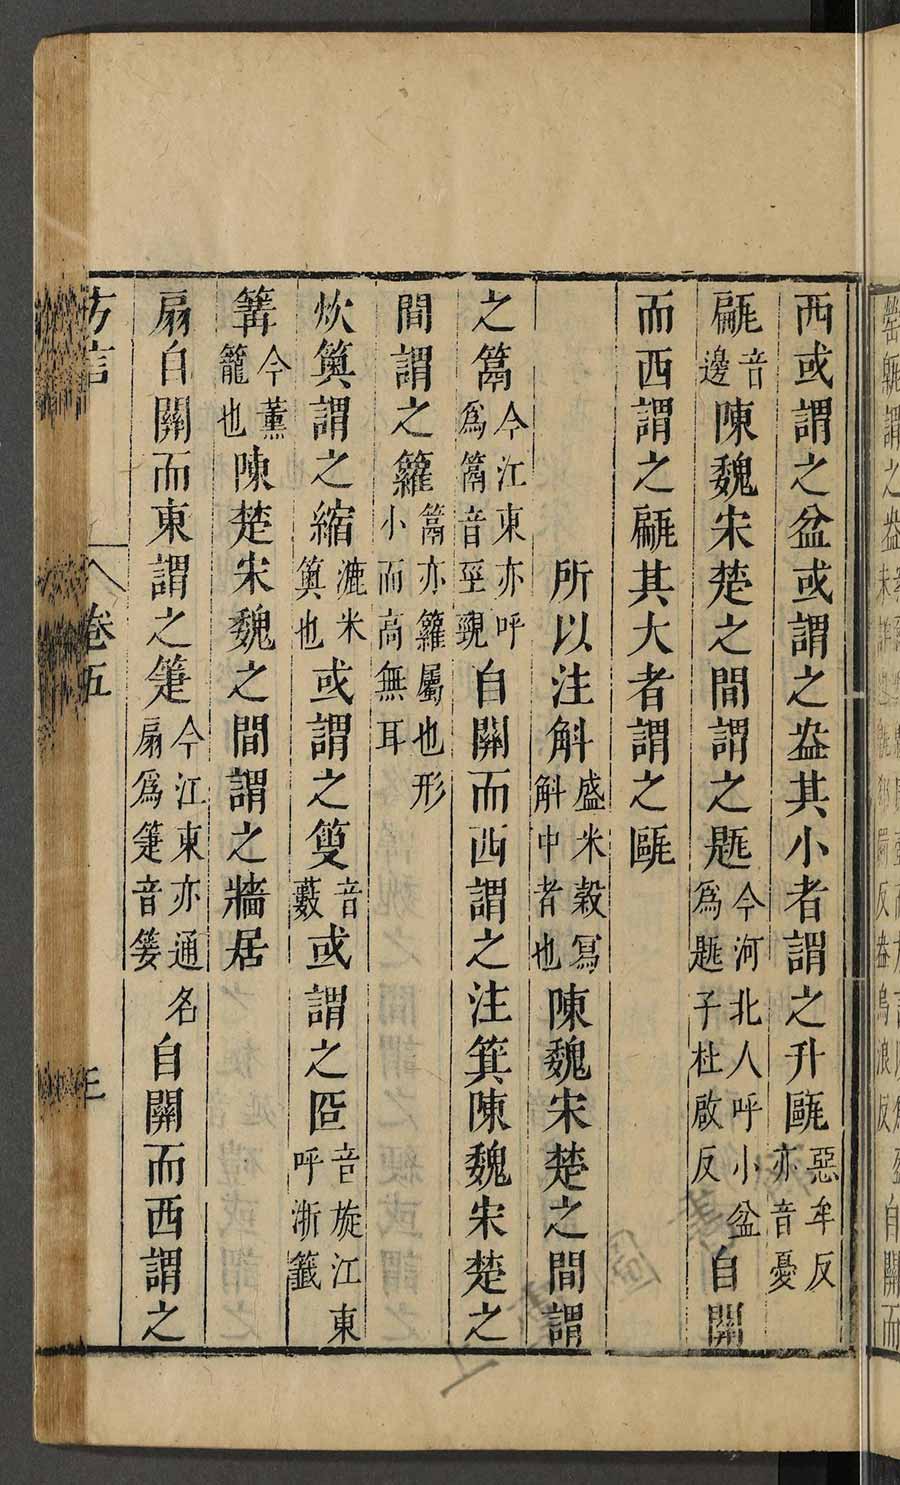 西或謂之盆或謂之盎其小者謂之升甌惡牟反亦音憂
甂音邊陳魏宋楚之間謂之㼵今河北人呼小盆爲㼵子杜啟反自關
而西謂之甂其大者謂之甌
所以注斛盛米穀寫斛中者也陳魏宋楚之間謂
之篙今江東亦呼爲篙音巫覡自關而西謂之注箕陳魏宋楚之
間謂之籮篙亦籮屬也形小而高無耳
炊䉛謂之縮漉米䉛也或謂之䉤音藪或謂之𠥣音旋江東呼淅籤
篝今薰籠也陳楚宋魏之間謂之牆居
扇自關而東謂之箑今江東亦通名扇爲箑音箑自關而西謂之
方言 卷五 三